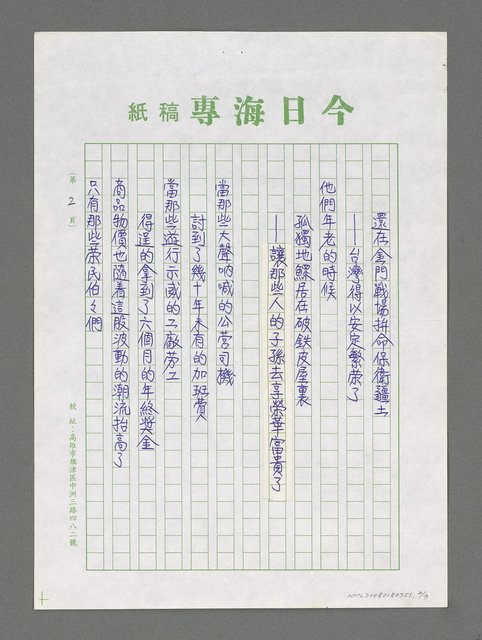 今日海專稿紙
還在金門戰場拚命保衛疆土
——台灣得以安定繁榮了
他們年老的時候
孤獨地鰥居在破鉄皮屋裏
——讓那些人的子孫去享榮華富貴了
當那些大聲吶喊的公營司機
討到了幾十年未有的加班費
當那些遊行示威的工廠勞工
得逞的拿到了六個月的年終獎金
商品物價也隨着這股波動的潮流抬高了
只有那些榮民伯々們
(第 2 頁)
校 址:高雄市旗津區中洲三路四八二號
NMTL20080180751, 2/3